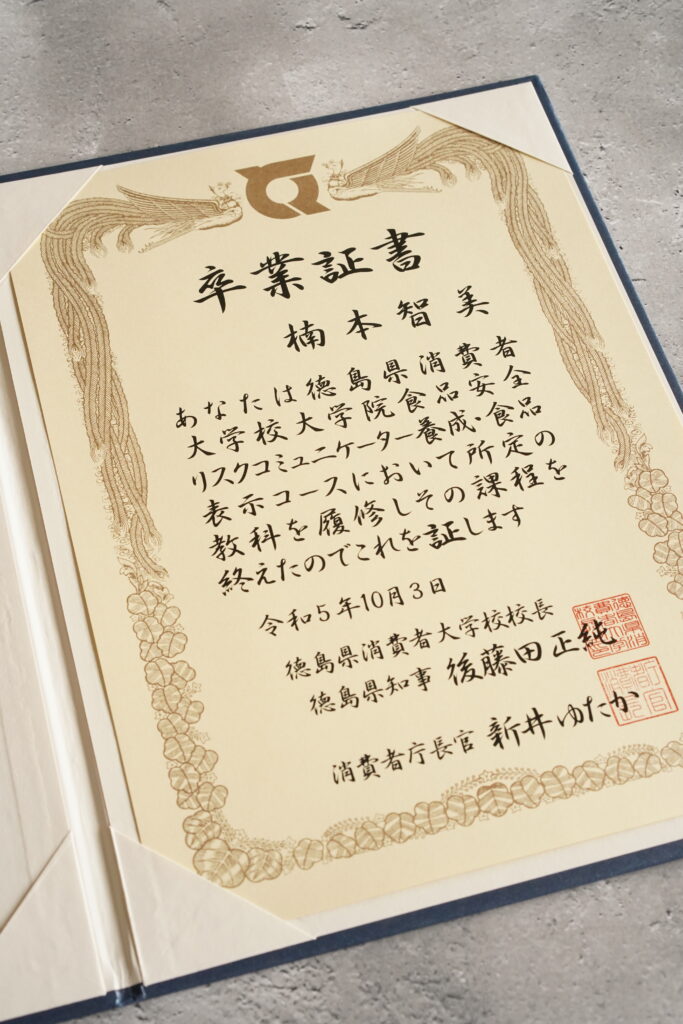 卒業証書
楠本智美
あなたは徳島県消費者
大学校大学院食品安全
リスクコミュニケーター養成・食品
表示コースにおいて所定の
教科を履修しその課程を
終えたのでこれを証します
令和5年10月3日
徳島県消費者大学校校長
徳島県知事 後藤田正純
消費者庁長官 新井ゆたか